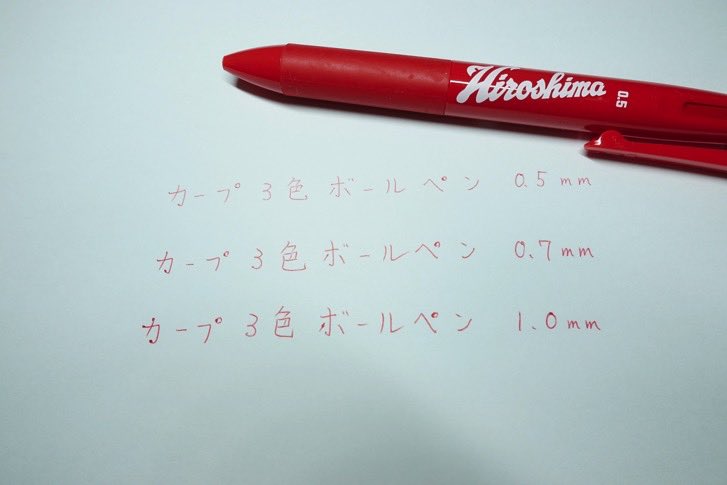 Hiroshima 0.5
カープ 3色 ボールペン 0.5mm
カープ 3色 ボールペン 0.7mm
カープ 3色 ボールペン 1.0mm